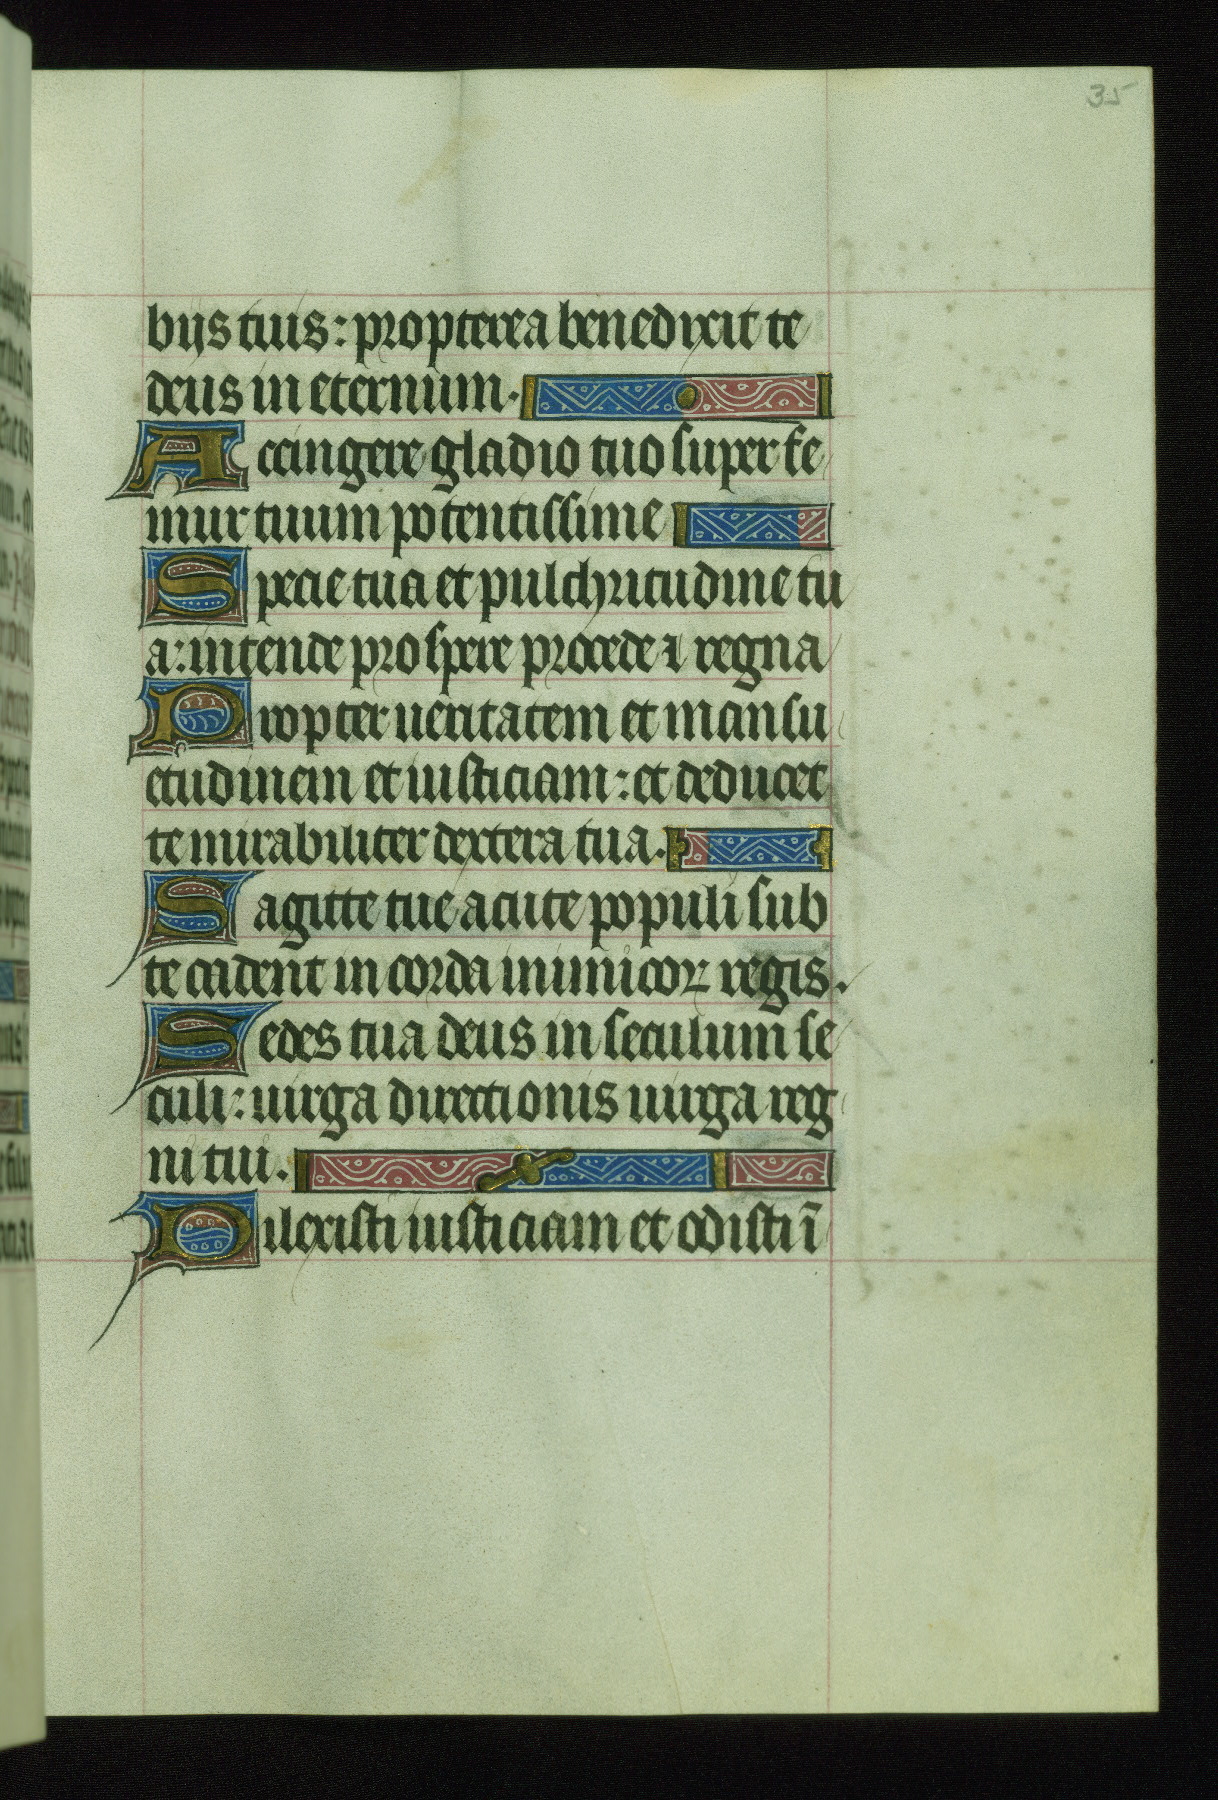 35
bijs tuis: propterea benedixit te
deus in eternum.
Accingere gladio tuo super fe
mur tuum potentissime
Specie tua et pulchritudine tu
a: intende prospere procede ⁊ regna
Propter ueritatem et mansu
etudinem et iusticiam: et deducet
te mirabiliter dextera tua.
Sagitte tue acute populi sub
te cadent in corda inimicoꝝ regis.
Sedes tua deus in seculum se
culi: uirga directionis uirga reg
ni tui.
Dilexisti iusticiam et odisti ī